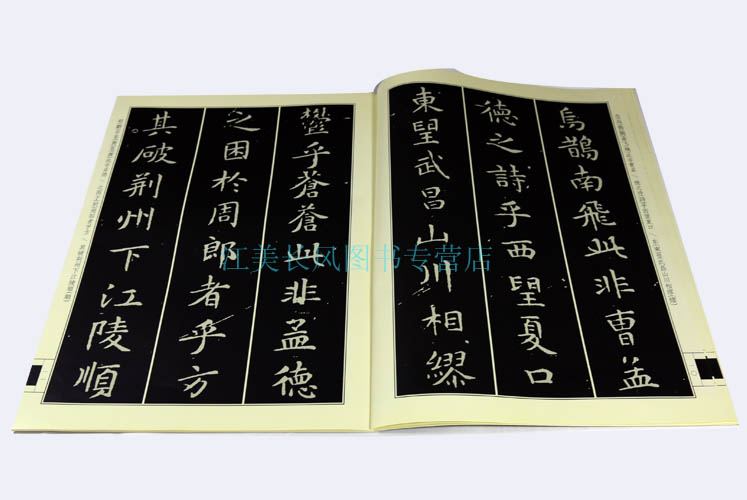 烏鵲南飛此非曹孟
德之詩乎西望夏口
東望武昌山川相繆
鬱乎蒼蒼此非孟德
之困於周郎者乎方
其破荆州下江陵順
江美长风图书专营店